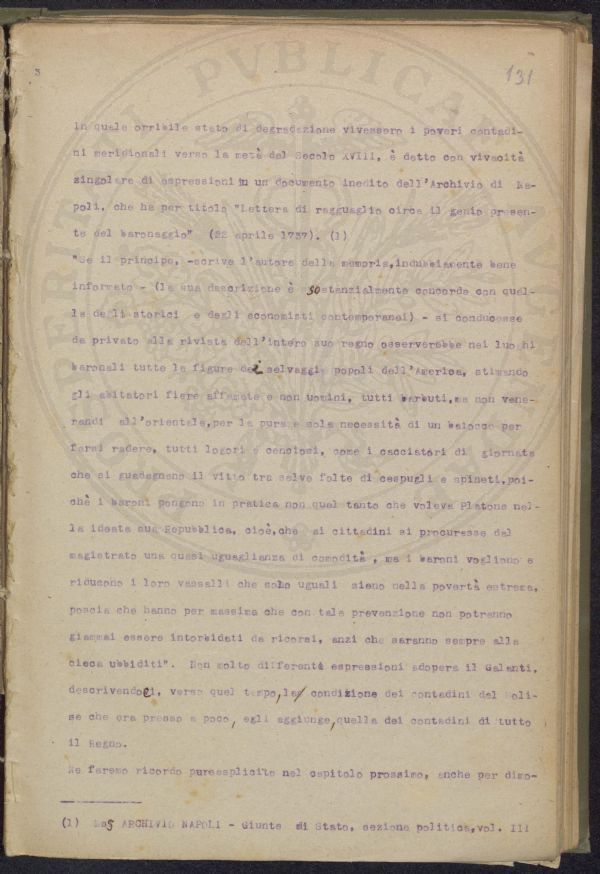 3
131
In quale orribile stato di degradazione vivessero i poveri contadi-
ni meridionali verso la metà del Secolo XVIII, è detto con vivacità
singolare di espressioni in un documento inedito dell'Archivio di Na-
poli, che ha per titolo "Lettera di ragguaglio circa il genio presen-
te del baronaggio" (22 aprile 1757). (1)
"Se il principe, -scrive l'autore della memoria,indubbiamente bene
informato - (la sua descrizione è sostanzialmente concorde con quel-
la degli storici e degli economisti contemporanei) - si conducesse
da privato alla rivista dell'intero suo regno osserverebbe nei luoghi
baronali tutte le figure dei selvaggi popoli dell'America, stimando
gli abitatori fiere affamate e non uomini, tutti barbuti,ma non vene-
randi all'orientale,per la pura e sola necessità di un baiocco per
farsi radere, tutti logori e cenciosi, come i cacciatori di giornata
che si guadagnano il vitto tra selve folte di cespugli e spineti,poi-
chè i baroni pongono in pratica non quel tanto che voleva Platone nel-
la ideata sua Repubblica, cioè,che ai cittadini si procurasse dal
magistrato una quasi uguaglianza di comodità, ma i baroni vogliono e
riducono i loro vassalli che solo uguali sieno nella povertà estrema,
poscia che hanno per massima che con tale prevenzione non potranno
giammai essere intorbidati da ricorsi, anzi che saranno sempre alla
cieca ubbiditi". Non molto differenti espressioni adopera il Galanti,
descrivendoci, verso quel tempo, la condizione dei contadini del Moli-
se che era presso a poco, egli aggiunge, quella dei contadini di tutto
il Regno.
Ne faremo ricordo pure esplicito nel capitolo prossimo, anche per dimo-
(1) ARCHIVIO NAPOLI - Giunta di Stato, sezione politica,vol. III
PVBLICA